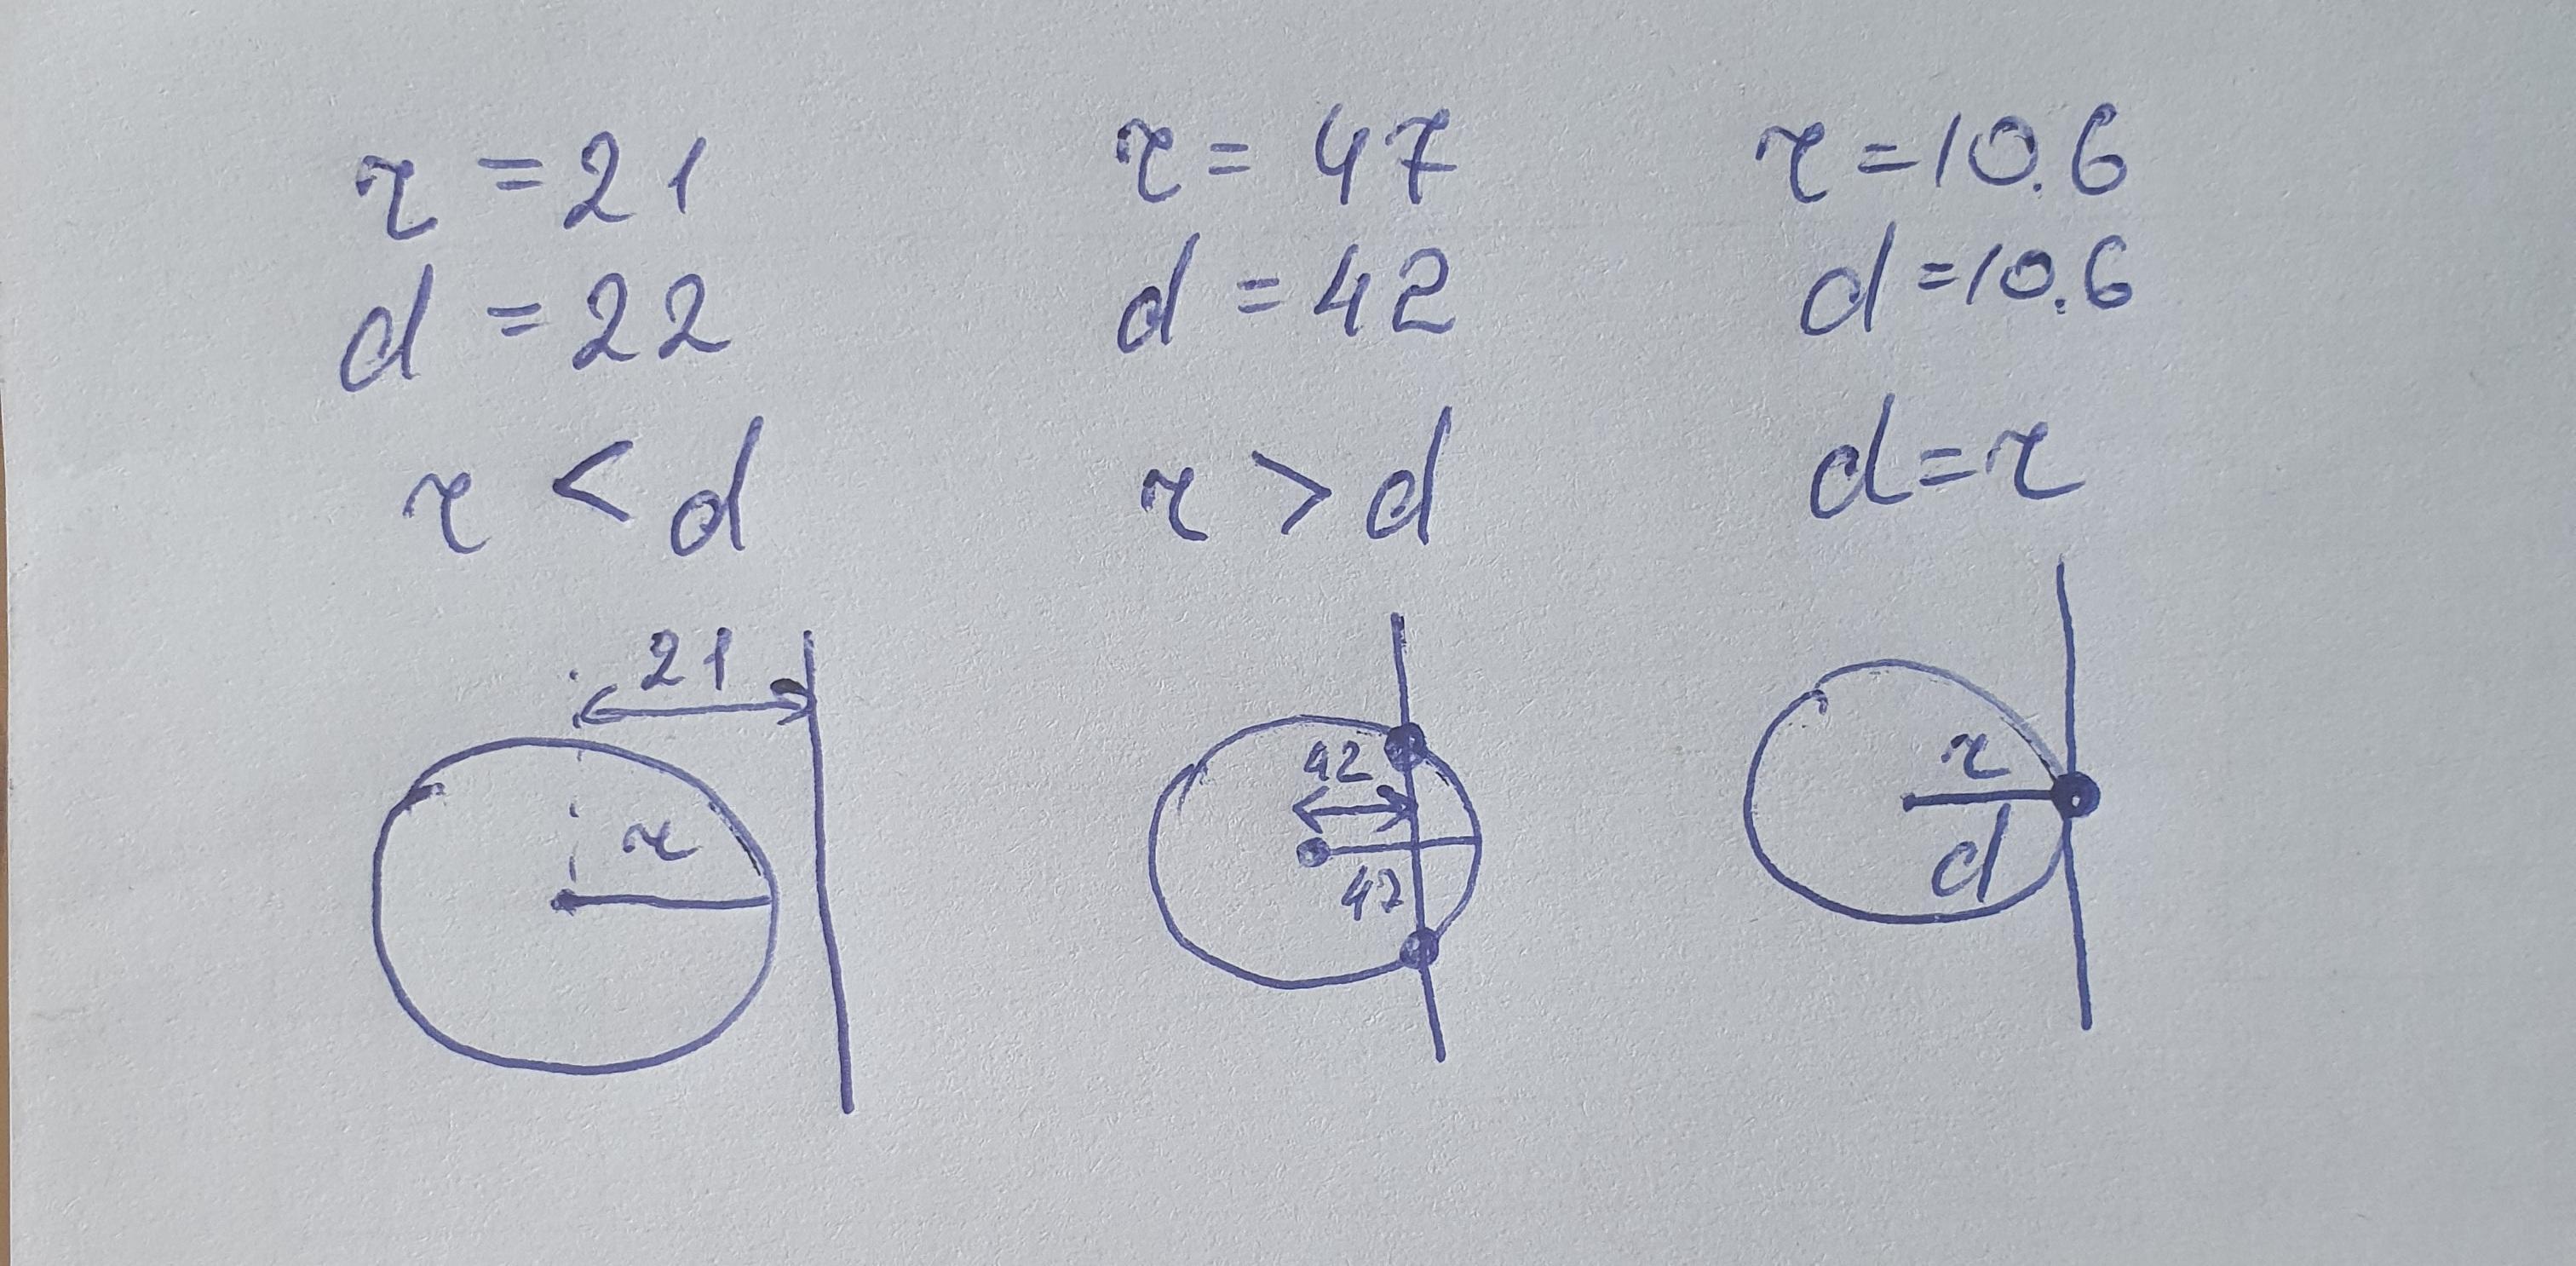 r = 21
d = 22
r < d
21
r
r = 47
d = 42
r > d
42
47
r = 10.6
d = 10.6
d = r
r
d